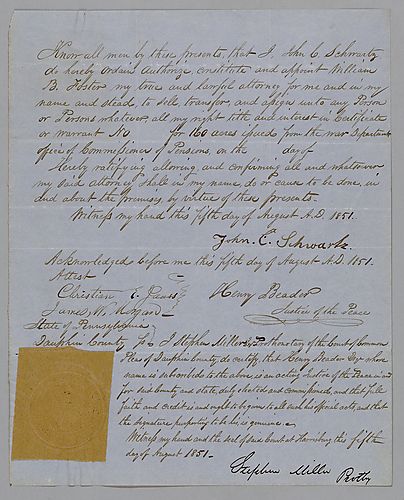 Know all men by these presents, that I, John C. Schwartz
do hereby ordain authorize, constitute and appoint William
B. Foster my true and lawful attorney for me and in my
name and stead, to sell, transfer, and assign unto any Person
or Persons whatever, all my right title and interest in Certificate
or Warrant No for 160 acres issued from the War Department
office of Commissioner of Pensions, on the day of
Hereby ratifying, allowing, and confirming all and whatsoever
my said attorney shall in my name, do or cause to be done, in
and about the premises, by virtue of these presents.
Witness my hand this fifth day of August A.D. 1851.
John. C. Schwartz
Acknowledged before me this fifth day of August A.D. 1851.
Attest
Christian E.
James W. Morgan
Henry Beader
Justice of the Peace
State of Pennsylvania
Dauphin County I Stephen Miller Prothonotary of the Court of Common
Pleas of Dauphin County, do certify, that Henry Beader Esqr whose
name is subscribed to the above, is an acting Justice of the Peace in and
for said County and state, duly elected and commissioned, and that full
faith and credit is and ought to be given to all such his official acts and that
the signature purporting to be his is genuine.
Witness my hand and the seal of said Court at Harrisburg this fifth
day of August 1851.
Stephen Miller
Prothy